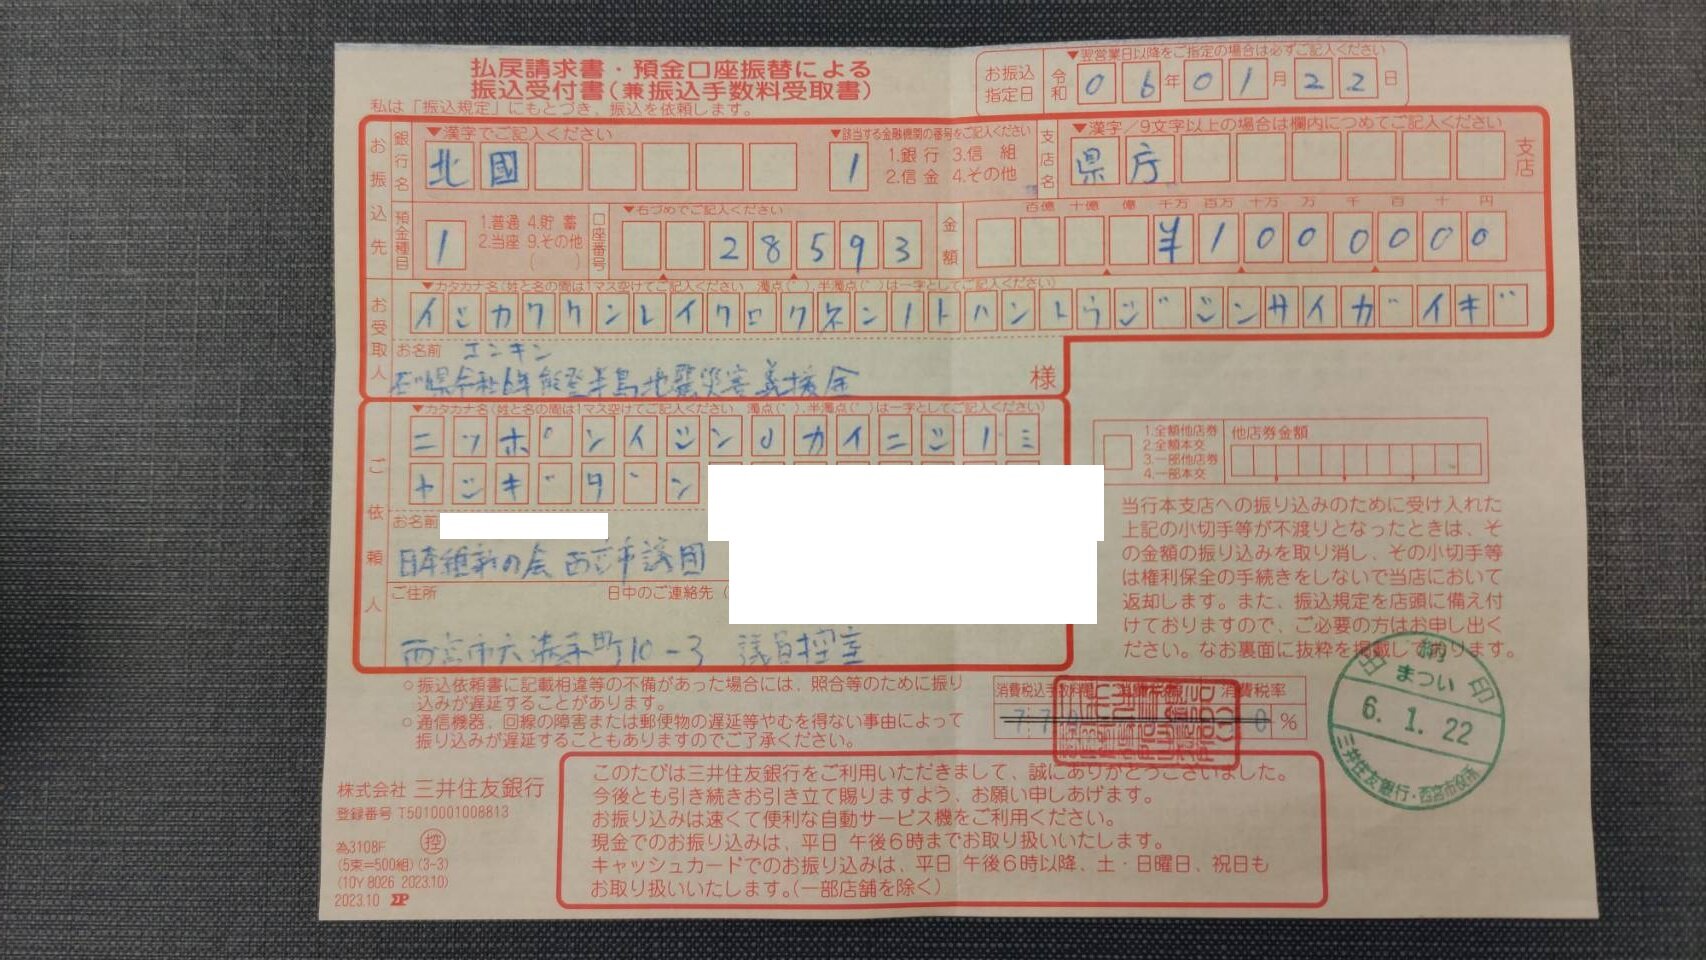 払戻請求書・預金口座振替による
振込受付書(兼振込手数料受取書)
私は「振込規定」にもとづき、振込を依頼します。
お振込指定日
▼翌営業日以降をご指定の場合は必ずご記入ください
令和 06年01月22日
お振込先
銀行名
▼漢字でご記入ください
北國
▼該当する金融機関の番号をご記入ください
1
1.銀行 3.信組
2.信金 4.その他
支店名
▼漢字/9文字以上の場合は欄内につめてご記入ください
県庁
支店
預金種目
1
1.普通 4.貯蓄
2.当座 9.その他
( )
口座番号
▼右づめでご記入ください
28593
金額
百億 十億 億 千万 百万 十万 万 千 百 十 円
¥1000000
お受取人
▼カタカナ名(姓と名の間は1マス空けてご記入ください 濁点(゛)、半濁点(゜)は一字としてご記入ください)
イシカワケンレイワロクネンノトハントウジ゛シンサイガ゛イギ゛
お名前 エンキン
石川県令和6年能登半島地震災害義援金
様
ご依頼人
▼カタカナ名(姓と名の間は1マス空けてご記入ください 濁点(゛)、半濁点(゜)は一字としてご記入ください)
ニツホ゜ンイシンノカイニシノミ
ヤシギ゛ダ゛ン
お名前
日本維新の会 西宮市議団
ご住所
日中のご連絡先(
西宮市六湛寺町10-3 議員控室
1.全額他店券
2.全額本交
3.一部他店券
4.一部本交
他店券金額
当行本支店への振り込みのために受け入れた
上記の小切手等が不渡りとなったときは、そ
の金額の振り込みを取り消し、その小切手等
は権利保全の手続きをしないで当店において
返却します。また、振込規定を店頭に備え付
けておりますので、ご必要の方はお申し出く
ださい。なお裏面に抜粋を掲載しております。
○振込依頼書に記載相違等の不備があった場合には、照合等のために振り
込みが遅延することがあります。
○通信機器、回線の障害または郵便物の遅延等やむを得ない事由によって
振り込みが遅延することもありますのでご了承ください。
消費税率
%
出納印
まつい
6.1.22
三井住友銀行・西宮市役所
株式会社 三井住友銀行
登録番号 T5010001008813
為3108F 控
(5束=500組)(3-3)
(10Y 8026 2023.10)
2023.10
このたびは三井住友銀行をご利用いただきまして、誠にありがとうございました。
今後とも引き続きお引き立て賜りますよう、お願い申しあげます。
お振り込みは速くて便利な自動サービス機をご利用ください。
現金でのお振り込みは、平日 午後6時までお取り扱いいたします。
キャッシュカードでのお振り込みは、平日 午後6時以降、土・日曜日、祝日も
お取り扱いいたします。(一部店舗を除く)